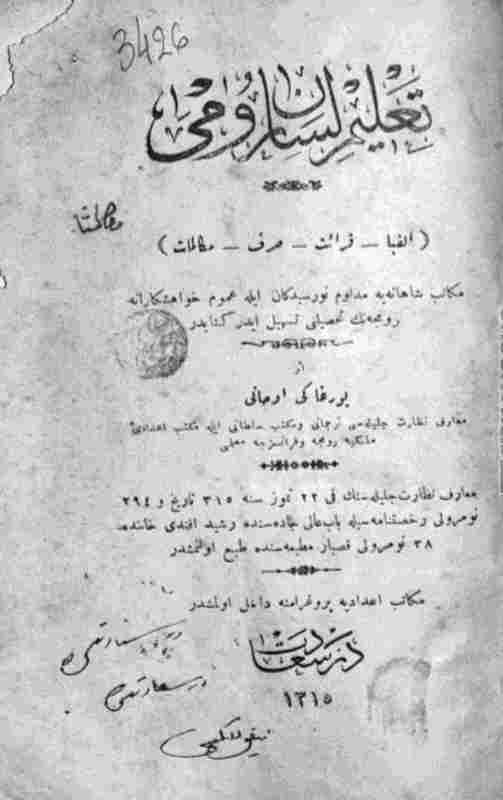 3426
تعلیم لسان رومی
( الفبا — قرائت — صرف — مكالمات )
مكاتب شاهانه‌یه مداوم نورسیدكان ایله عموم خواهشكارانه
رومجه‌نك تحصیلنی تسهیل ایدر كتابدر
از
یورغاكی اوجانی
معارف نظارت جلیله‌سی ترجمانی ومكتب سلطانی ایله مكتب اعدادئ
ملكیه رومجه وفرانسزجه معلمی
معارف نظارت جلیله‌سنك فی ٢٢ تموز سنه ٣١٥ تاریخ و ٣٩٤
نومرولی رخصتنامه‌سیله باب عالی جاده‌سنده رشید افندی خاننده
٣٨ نومرولی قصبار مطبعه‌سنده طبع اولنمشدر
مكاتب اعدادیه پروغرامنه داخل اولمشدر
در سعادت
١٣١٥